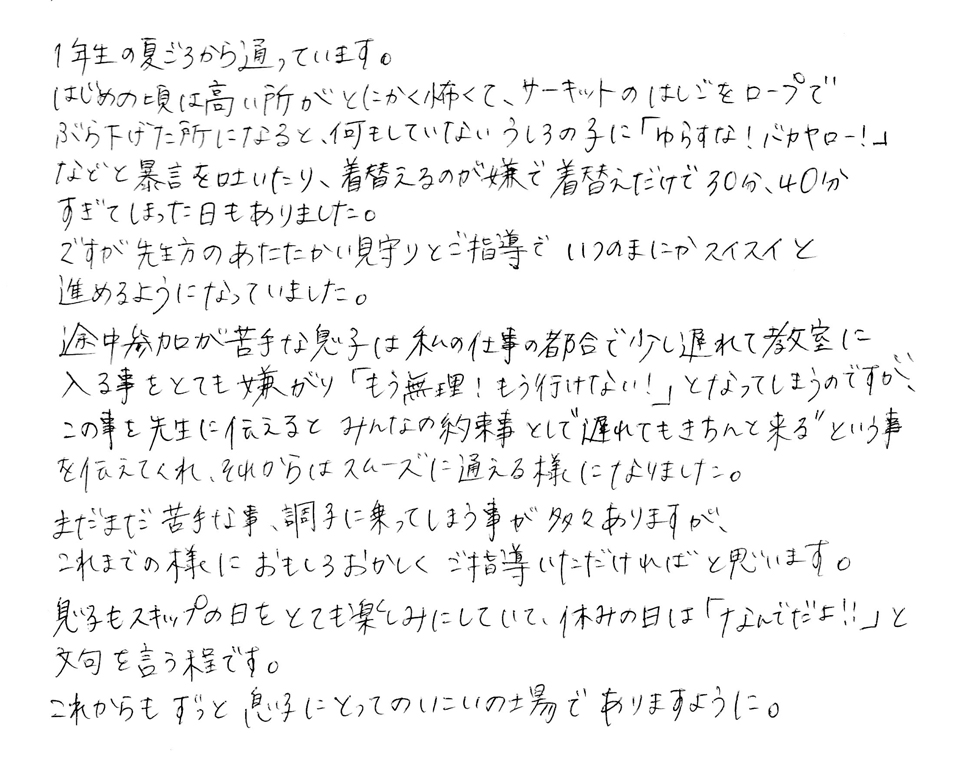 1年生の夏ごろから通っています。
はじめの頃は高い所がとにかく怖くて、サーキットのはしごをロープで
ぶら下げた所になると、何もしていないうしろの子に「ゆらすな!バカヤロー!」
などと暴言を吐いたり、着替えるのが嫌で着替えだけで30分、40分
すぎてしまった日もありました。
ですが先生方のあたたかい見守りとご指導でいつのまにかスイスイと
進めるようになっていました。
途中参加が苦手な息子は私の仕事の都合で少し遅れて教室に
入る事をとても嫌がり「もう無理!もう行けない!」となってしまうのですが、
この事を先生に伝えるとみんなの約束事として"遅れてもきちんと来る"という事
を伝えてくれ、それからはスムーズに通える様になりました。
まだまだ苦手な事、調子に乗ってしまう事が多々ありますが、
これまでの様におもしろおかしくご指導いただければと思います。
息子もスキップの日をとても楽しみにしていて、休みの日は「なんでだよ!!」と
文句を言う程です。
これからもずっと息子にとってのいこいの場でありますように。